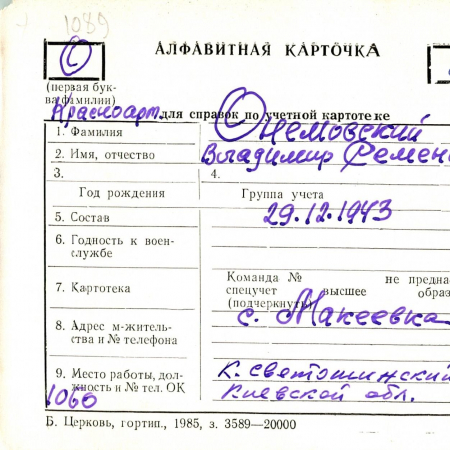 1089
С
АЛФАВИТНАЯ КАРТОЧКА
(первая бук-
ва фамилии)
Красноарм. для справок по учетной картотеке
1. Фамилия
2. Имя, отчество Владимир Семен
3. 4.
Год рождения Группа учета
5. Состав 29.12.1943
6. Годность к воен-
службе
Команда № не предна
7. Картотека спецучет высшее образ
(подчеркнуть)
8. Адрес м-житель-
ства и № телефона с. Макеевка
9. Место работы, дол-
жность и № тел. ОК
к. Светошинский
Киевской обл.
1060
Б. Церковь, гортип., 1985, з. 3589—20000